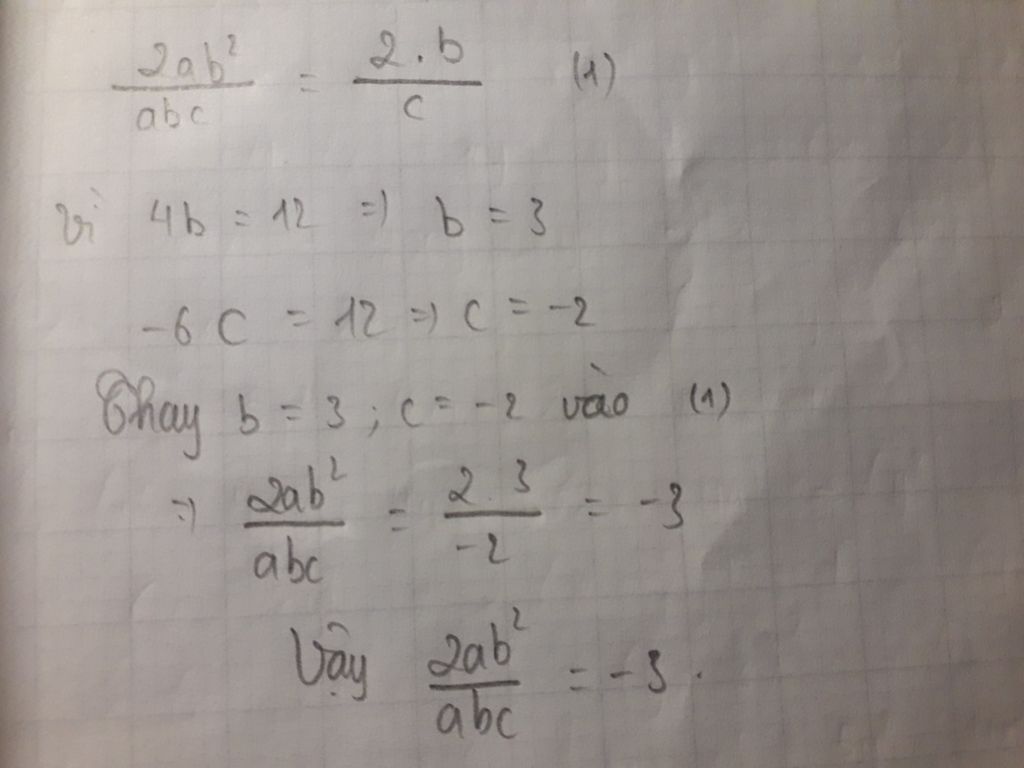 2ab² / abc = 2.b / c (1)
Vì 4b = 12 => b = 3
-6C = 12 => c = -2
Thay b = 3 ; c = -2 vào (1)
=> 2ab² / abc = 2.3 / -2 = -3
Vậy 2ab² / abc = -3.